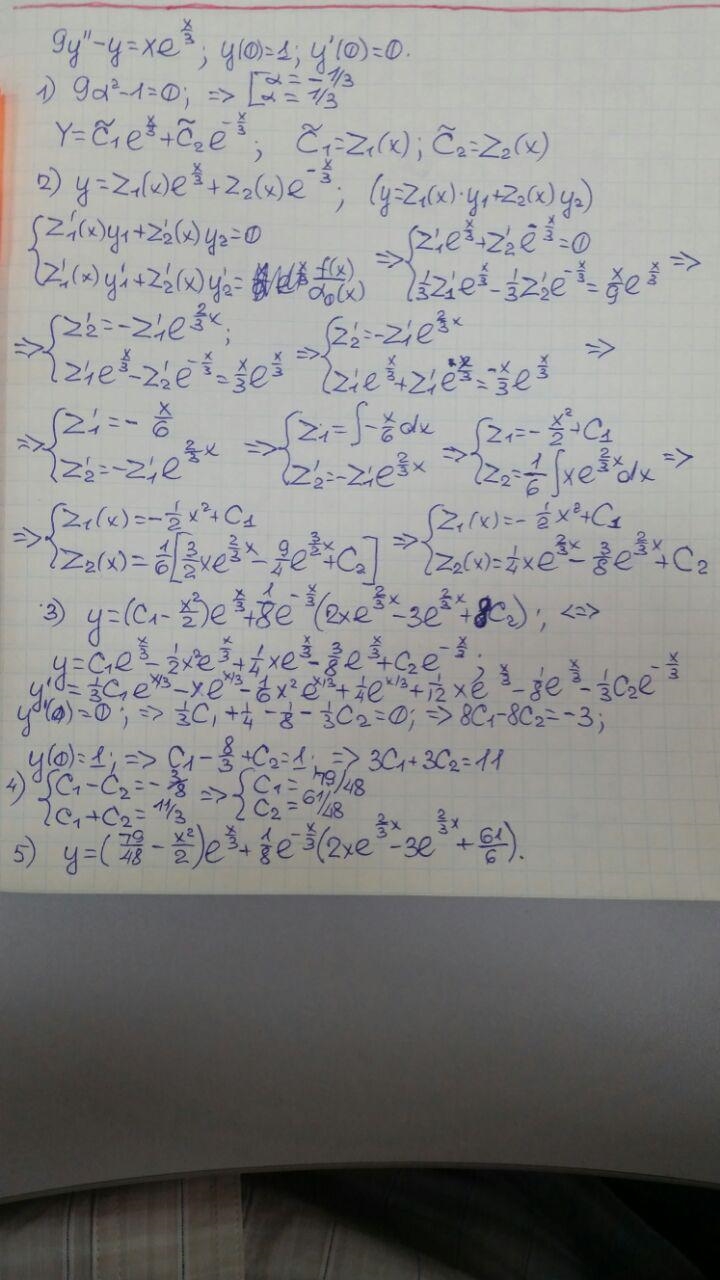 9y''-y=xe^{x/3}; y(0)=1; y'(0)=0.
1) 9α²-1=0; => [α=-1/3 α=1/3
Y=C̃₁e^{x/3}+C̃₂e^{-x/3}; C̃₁=Z₁(x); C̃₂=Z₂(x)
2) y=Z₁(x)e^{x/3}+Z₂(x)e^{-x/3}; (y=Z₁(x)·y₁+Z₂(x)y₂)
{Z₁'(x)y₁+Z₂'(x)y₂=0 => {Z₁'e^{x/3}+Z₂'e^{-x/3}=0 =>
Z₁'(x)y₁'+Z₂'(x)y₂'= f(x)/α₀(x) 1/3Z₁'e^{x/3}-1/3Z₂'e^{-x/3}=x/9e^{x/3}
=> {Z₂'=-Z₁'e^{2/3x}; => {Z₂'=-Z₁'e^{2/3x} =>
Z₁'e^{x/3}-Z₂'e^{-x/3}=x/3e^{x/3} Z₁'e^{x/3}+Z₁'e^{x/3}=-x/3e^{x/3}
=> {Z₁'=-x/6 => {Z₁=∫-x/6dx => {Z₁=-x²/2+C₁ =>
Z₂'=-Z₁'e^{2/3x} Z₂'=-Z₁'e^{2/3x} Z₂=1/6∫xe^{2/3x}dx
=> {Z₁(x)=-1/2x²+C₁ => {Z₁(x)=-1/2x²+C₁
Z₂(x)=1/6[3/2xe^{2/3x}-9/4e^{3/2x}+C₂] Z₂(x)=1/4xe^{2/3x}-3/8e^{2/3x}+C₂
3) y=(C₁-x²/2)e^{x/3}+1/8e^{-x/3}(2xe^{2/3x}-3e^{2/3x}+8C₂); <=>
y=C₁e^{x/3}-1/2x²e^{x/3}+1/4xe^{x/3}-3/8e^{x/3}+C₂e^{-x/3};
y'=1/3C₁e^{x/3}-xe^{x/3}-1/6x²e^{x/3}+1/4e^{x/3}+1/12xe^{x/3}-1/8e^{x/3}-1/3C₂e^{-x/3}
y'(0)=0; => 1/3C₁+1/4-1/8-1/3C₂=0; => 8C₁-8C₂=-3;
y(0)=1; => C₁-8/3+C₂=1; => 3C₁+3C₂=11
4) {C₁-C₂=-3/8 => {C₁=79/48
C₁+C₂=11/3 C₂=61/48
5) y=(79/48-x²/2)e^{x/3}+1/8e^{-x/3}(2xe^{2/3x}-3e^{2/3x}+61/6).